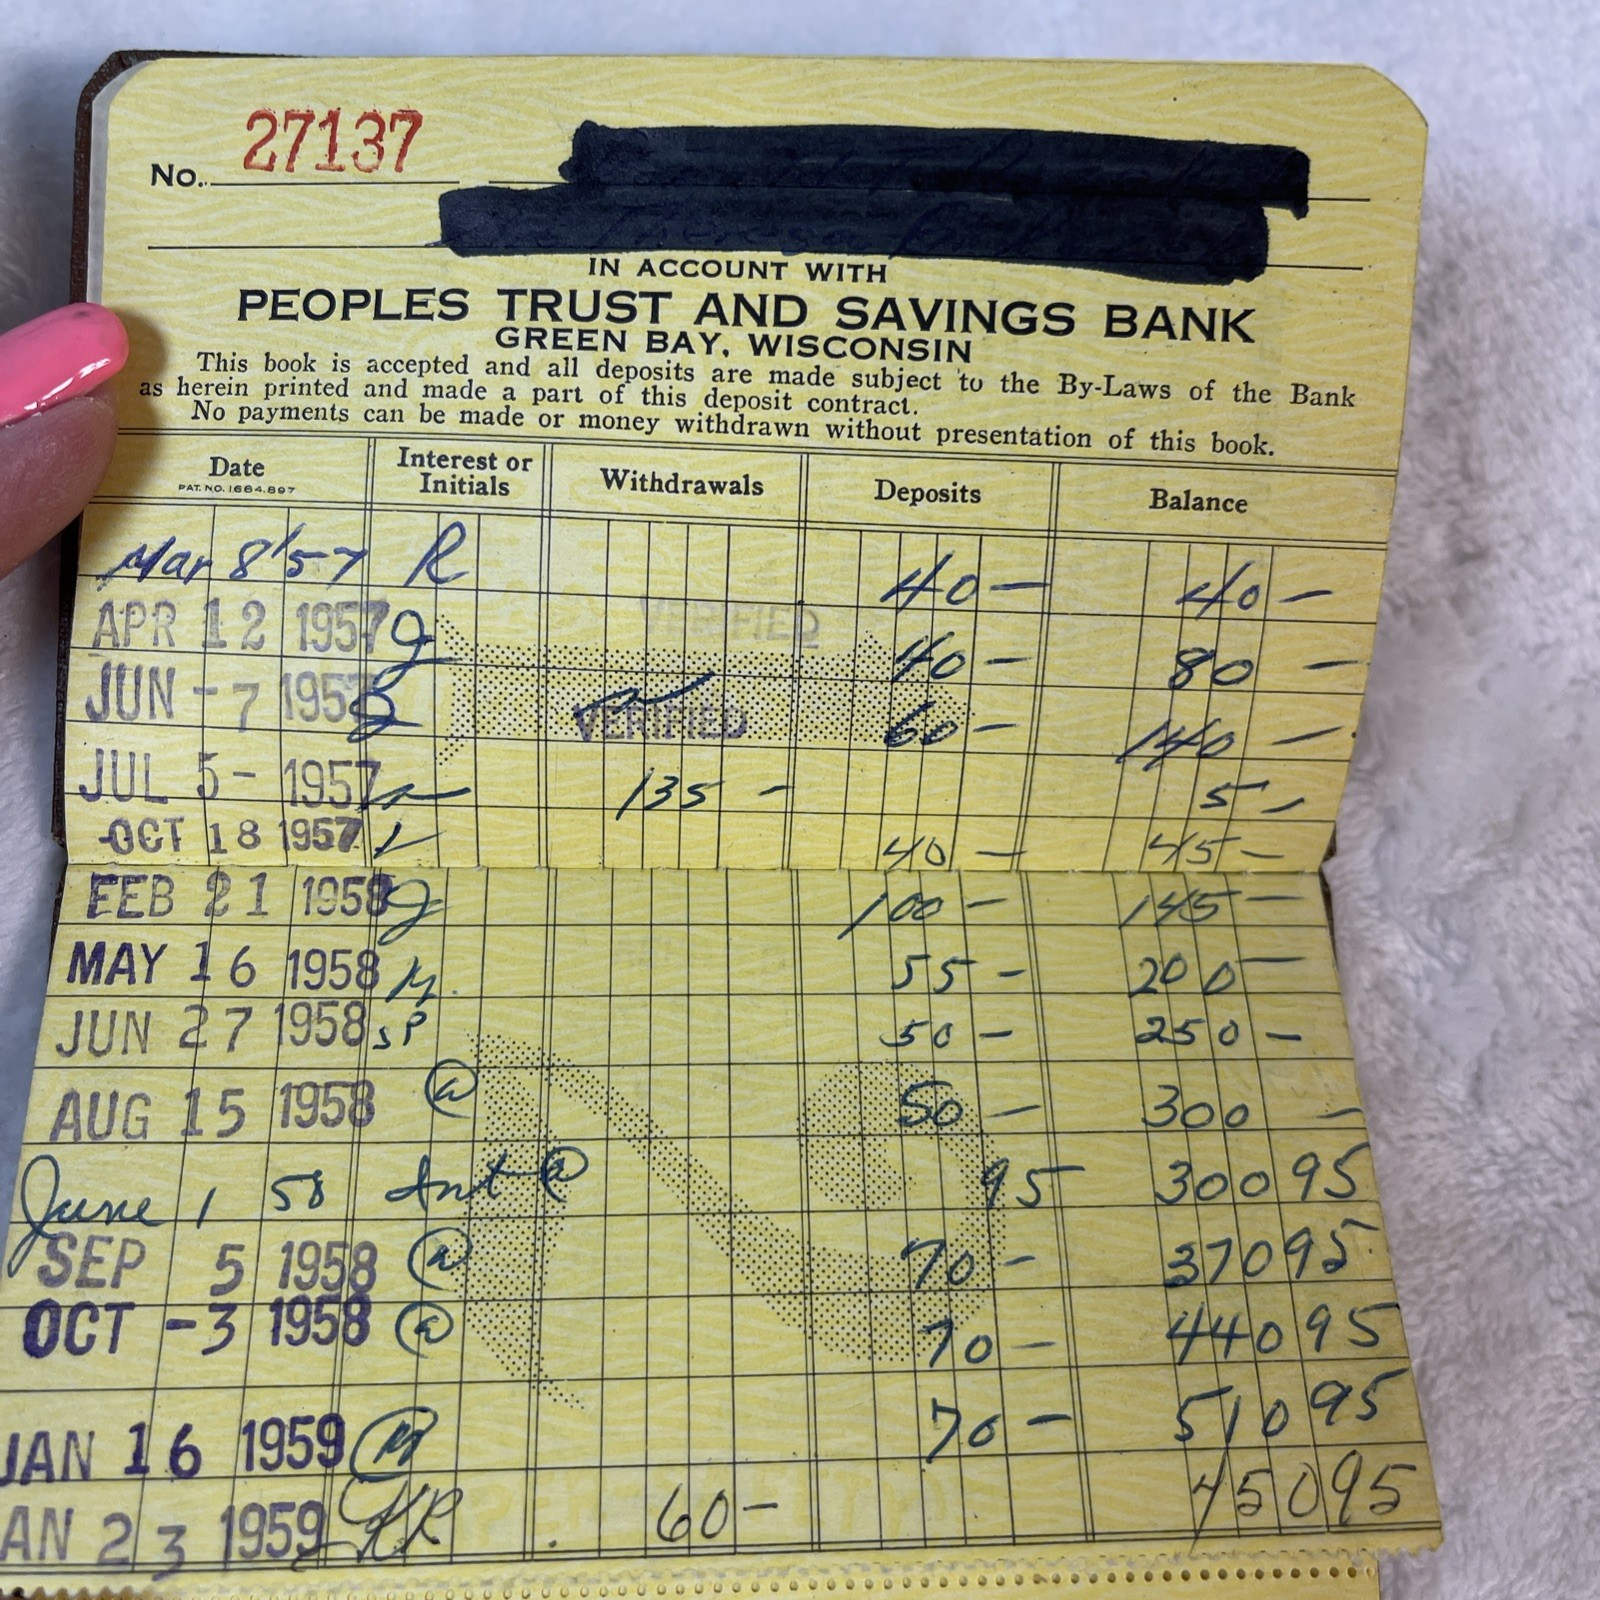 No. 27137
IN ACCOUNT WITH
PEOPLES TRUST AND SAVINGS BANK
GREEN BAY, WISCONSIN
This book is accepted and all deposits are made subject to the By-Laws of the Bank
as herein printed and made a part of this deposit contract.
No payments can be made or money withdrawn without presentation of this book.
Date Interest or Initials Withdrawals Deposits Balance
PAT. NO. 1664,897
Mar 8 '57 R 40 — 40 —
VERIFIED
APR 12 1957 40 — 80 —
JUN -7 1957 60 — 140 —
VERIFIED
JUL 5- 1957 135 - 5 -
OCT 18 1957 40 — 45 —
FEB 21 1958 100 — 145 —
MAY 16 1958 M. 55 — 200 —
JUN 27 1958 SP 50 — 250 —
AUG 15 1958 50 — 300 —
June 1 58 Int 95 300 95
SEP 5 1958 70 — 370 95
OCT -3 1958 70 — 440 95
JAN 16 1959 70 — 510 95
AN 23 1959 60 — 450 95